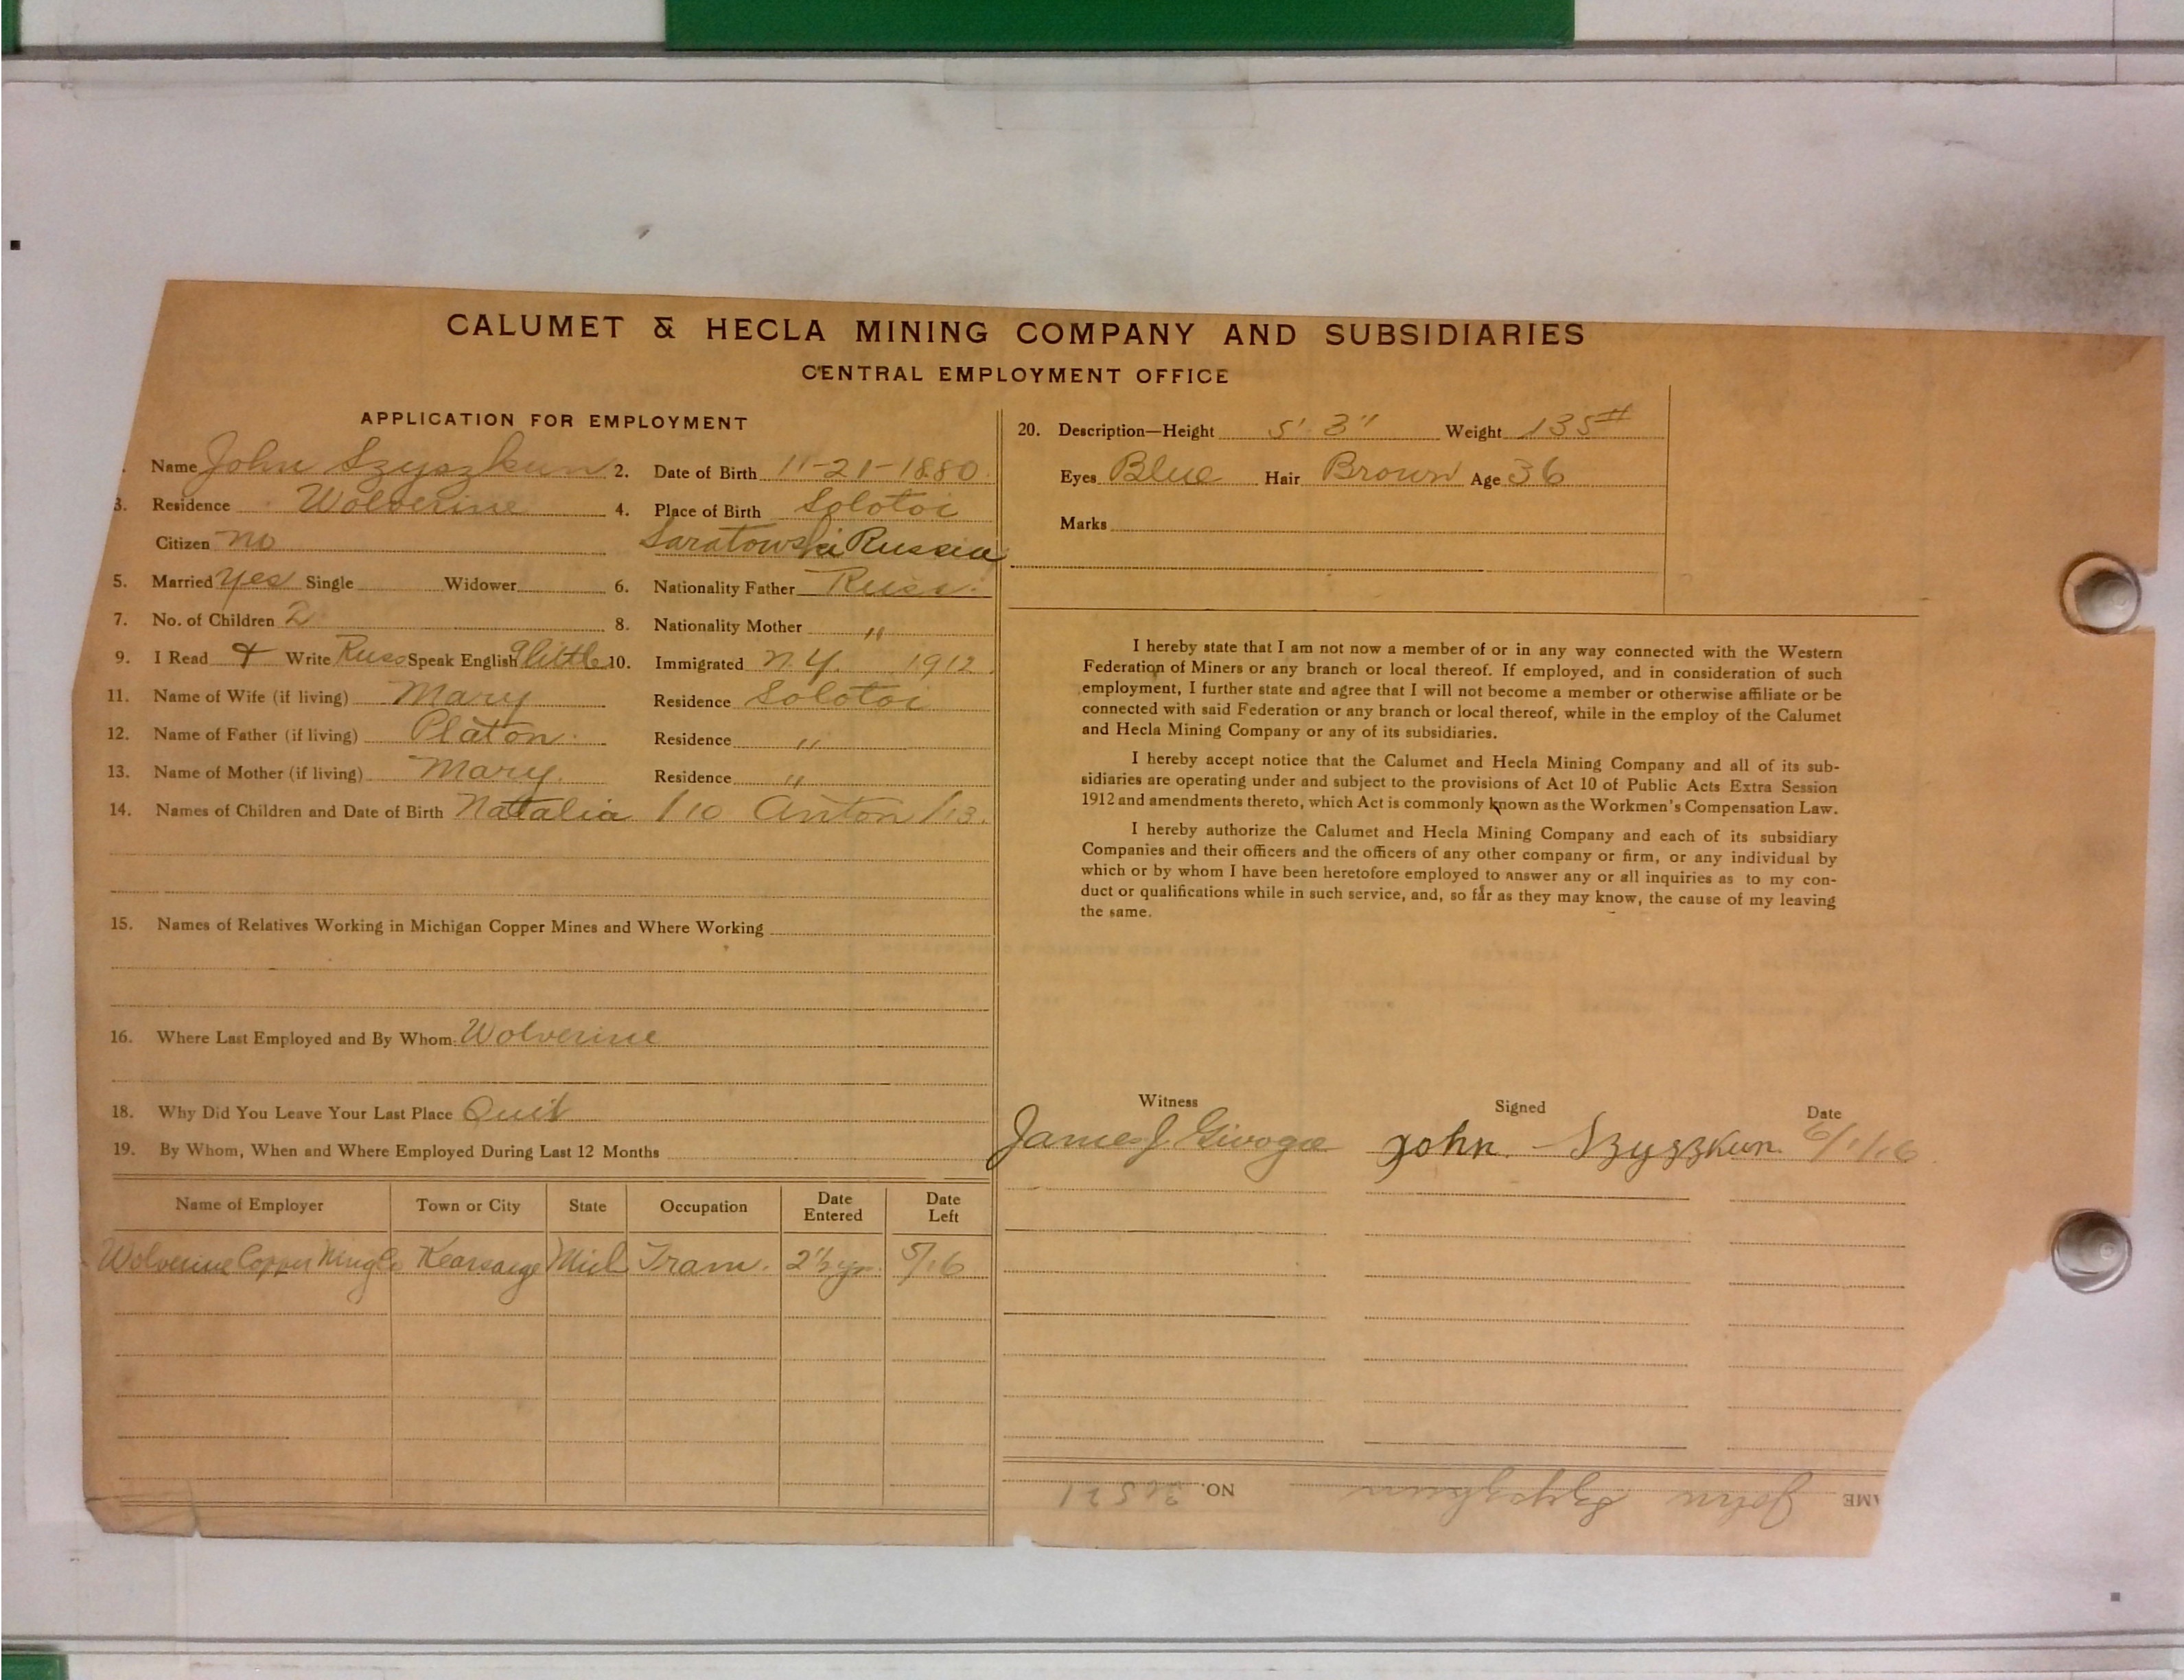 CALUMET & HECLA MINING COMPANY AND SUBSIDIARIES
CENTRAL EMPLOYMENT OFFICE
APPLICATION FOR EMPLOYMENT
Name John Szyszkun 2. Date of Birth 11-21-1880
3. Residence Wolverine 4. Place of Birth Solotoi
Citizen no Saratowski Russia
5. Married yes Single Widower 6. Nationality Father Russ.
7. No. of Children 2 8. Nationality Mother "
9. I Read + Write Russ Speak English little 10. Immigrated N.Y. 1912
11. Name of Wife (if living) Mary Residence Solotoi
12. Name of Father (if living) Platon Residence "
13. Name of Mother (if living) Mary. Residence "
14. Names of Children and Date of Birth Natalia /10 Anton /13.
15. Names of Relatives Working in Michigan Copper Mines and Where Working
16. Where Last Employed and By Whom Wolverine
18. Why Did You Leave Your Last Place Quit
19. By Whom, When and Where Employed During Last 12 Months
Name of Employer Town or City State Occupation Date Entered Date Left
Wolverine Copper Kearsarge Mich Tram. 2½ yr. 5/16
20. Description—Height 5' 3" Weight 135#
Eyes Blue Hair Brown Age 36
Marks
I hereby state that I am not now a member of or in any way connected with the Western
Federation of Miners or any branch or local thereof. If employed, and in consideration of such
employment, I further state and agree that I will not become a member or otherwise affiliate or be
connected with said Federation or any branch or local thereof, while in the employ of the Calumet
and Hecla Mining Company or any of its subsidiaries.
I hereby accept notice that the Calumet and Hecla Mining Company and all of its sub-
sidiaries are operating under and subject to the provisions of Act 10 of Public Acts Extra Session
1912 and amendments thereto, which Act is commonly known as the Workmen's Compensation Law.
I hereby authorize the Calumet and Hecla Mining Company and each of its subsidiary
Companies and their officers and the officers of any other company or firm, or any individual by
which or by whom I have been heretofore employed to answer any or all inquiries as to my con-
duct or qualifications while in such service, and, so far as they may know, the cause of my leaving
the same.
Witness Signed Date
James J. John Szyszkun. 6/1/16
AME John Szyszkun NO.